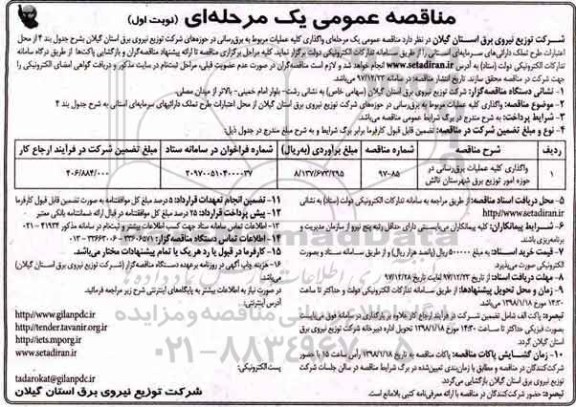 مناقصه عمومی یک مرحله‌ای (نوبت اول)
شرکت توزیع نیروی برق استان گیلان در نظر دارد مناقصه عمومی یک مرحله‌ای واگذاری کلیه عملیات مربوط به برق‌رسانی در حوزه‌های شرکت توزیع نیروی برق استان گیلان بشرح جدول بند ۴ از محل
اعتبارات طرح تملک دارائی‌های سرمایه‌ای استانی را از طریق سامانه تدارکات الکترونیکی دولت برگزار نماید. کلیه مراحل برگزاری مناقصه تا ارائه پیشنهاد مناقصه‌گران و بازگشایی پاکت‌ها از طریق درگاه سامانه
تدارکات الکترونیکی دولت (ستاد) به آدرس www.setadiran.ir انجام خواهد شد و لازم است مناقصه‌گران در صورت عدم عضویت قبلی، مراحل ثبت‌نام در سایت مذکور و دریافت گواهی امضای الکترونیکی را
جهت شرکت در مناقصه محقق سازند. تاریخ انتشار مناقصه در سامانه ۹۷/۱۲/۲۳ می‌باشد.
۱- نشانی دستگاه مناقصه‌گزار: شرکت توزیع نیروی برق استان گیلان (سهامی خاص) به نشانی رشت- بلوار امام خمینی- بالاتر از میدان مصلی.
۲- موضوع مناقصه: واگذاری کلیه عملیات مربوط به برق‌رسانی در حوزه‌های شرکت توزیع نیروی برق استان گیلان از محل اعتبارات طرح تملک دارائیهای سرمایه‌ای استانی به شرح جدول بند ۴
۳- شرایط پرداخت: به شرح مندرج در برگ شرایط عمومی مناقصه می‌باشد.
۴- نوع و مبلغ تضمین شرکت در مناقصه: تضمین قابل قبول کارفرما برابر برگ شرایط و به شرح مبلغ مندرج در جدول ذیل:
ردیف شرح مناقصه شماره مناقصه مبلغ برآوردی (به‌ریال) شماره فراخوان در سامانه ستاد مبلغ تضمین شرکت در فرآیند ارجاع کار
۱ واگذاری کلیه عملیات برق‌رسانی در حوزه امور توزیع برق شهرستان تالش ۹۷-۸۵ ۸/۱۳۷/۶۷۳/۲۹۵ ۲۰۹۷۰۰۵۱۰۴۰۰۰۰۳۷ ۴۰۶/۸۸۴/۰۰۰
۵- محل دریافت اسناد مناقصه: از طریق مراجعه به سامانه تدارکات الکترونیکی دولت (ستاد) به نشانی
http//www.setadiran.ir
۶- شرایط پیمانکاران: کلیه پیمانکاران می‌بایستی دارای حداقل رتبه پنج نیرو از سازمان مدیریت و
برنامه‌ریزی باشند.
۷- قیمت خرید اسناد: به مبلغ ۵۰۰۰۰۰ ریال (پانصد هزار ریال) و از طریق سامانه ستاد و بصورت
الکترونیکی صورت می‌پذیرد.
۸- مهلت دریافت اسناد: از تاریخ ۹۷/۱۲/۲۳ لغایت تاریخ ۹۷/۱۲/۲۸
۹- زمان و محل تحویل پیشنهادها: از طریق مراجعه به سامانه تدارکات الکترونیکی دولت و حداکثر تا ساعت
۱۴:۳۰ مورخ ۱۳۹۸/۱/۱۸ می‌باشد.
تبصره: پاکت الف شامل تضمین شرکت در فرآیند ارجاع کار علاوه بر بارگذاری در سامانه فوق می‌بایست
بصورت فیزیکی حداکثر تا ساعت ۱۴:۳۰ مورخ ۱۳۹۸/۱/۱۸ تحویل اداره دبیرخانه شرکت توزیع نیروی برق
استان گیلان گردد.
۱۰- زمان گشایش پاکات مناقصه: پاکات مناقصه به تاریخ ۱۳۹۸/۱/۱۸ رأس ساعت ۱۵ با حضور
شرکت‌کنندگان در مناقصه و مطابق با زمان‌بندی تعیین‌شده در برگ شرایط مناقصه در سالن جلسات شرکت
توزیع نیروی برق استان گیلان بازگشایی می‌گردد.
تبصره: حضور شرکت‌کنندگان در مناقصه با ارائه معرفی‌نامه کتبی بلامانع است.
۱۱- تضمین انجام تعهدات قرارداد: ۵ درصد مبلغ کل موافقتنامه به صورت تضمین قابل قبول کارفرما
۱۲- پیش پرداخت قرارداد: ۲۵ درصد مبلغ کل موافقتنامه در قبال ارائه ضمانتنامه بانکی معتبر
۱۳- اطلاعات تماس سامانه ستاد جهت کسب اطلاعات بیشتر و ثبت‌نام در سامانه مذکور ۴۱۹۳۴-۰۲۱
۱۴- اطلاعات تماس دستگاه مناقصه‌گزار:
۱۵- کارفرما در قبول یا رد هر یک یا تمام پیشنهادات مختار می‌باشد.
۱۶- هزینه چاپ آگهی در روزنامه برعهده دستگاه مناقصه‌گزار (شرکت توزیع نیروی برق استان گیلان)
می‌باشد.
در صورت نیاز به اطلاعات بیشتر به پایگاههای اینترنتی شرح زیر مراجعه فرمائید.
آدرس اینترنتی:
http//www.gilanpdc.ir
http://tender.tavanir.org.ir
http://iets.mporg.ir
www.setadiran.ir
پست‌الکترونیکی:
tadarokat@gilanpdc.ir
شرکت توزیع نیروی برق استان گیلان
۰۲۱-۸۸۳۴۹۶۷۰-۵